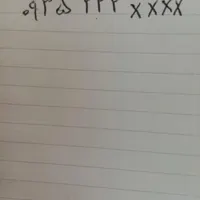 ۰۹۳۵ ۲۲۲ xxxx